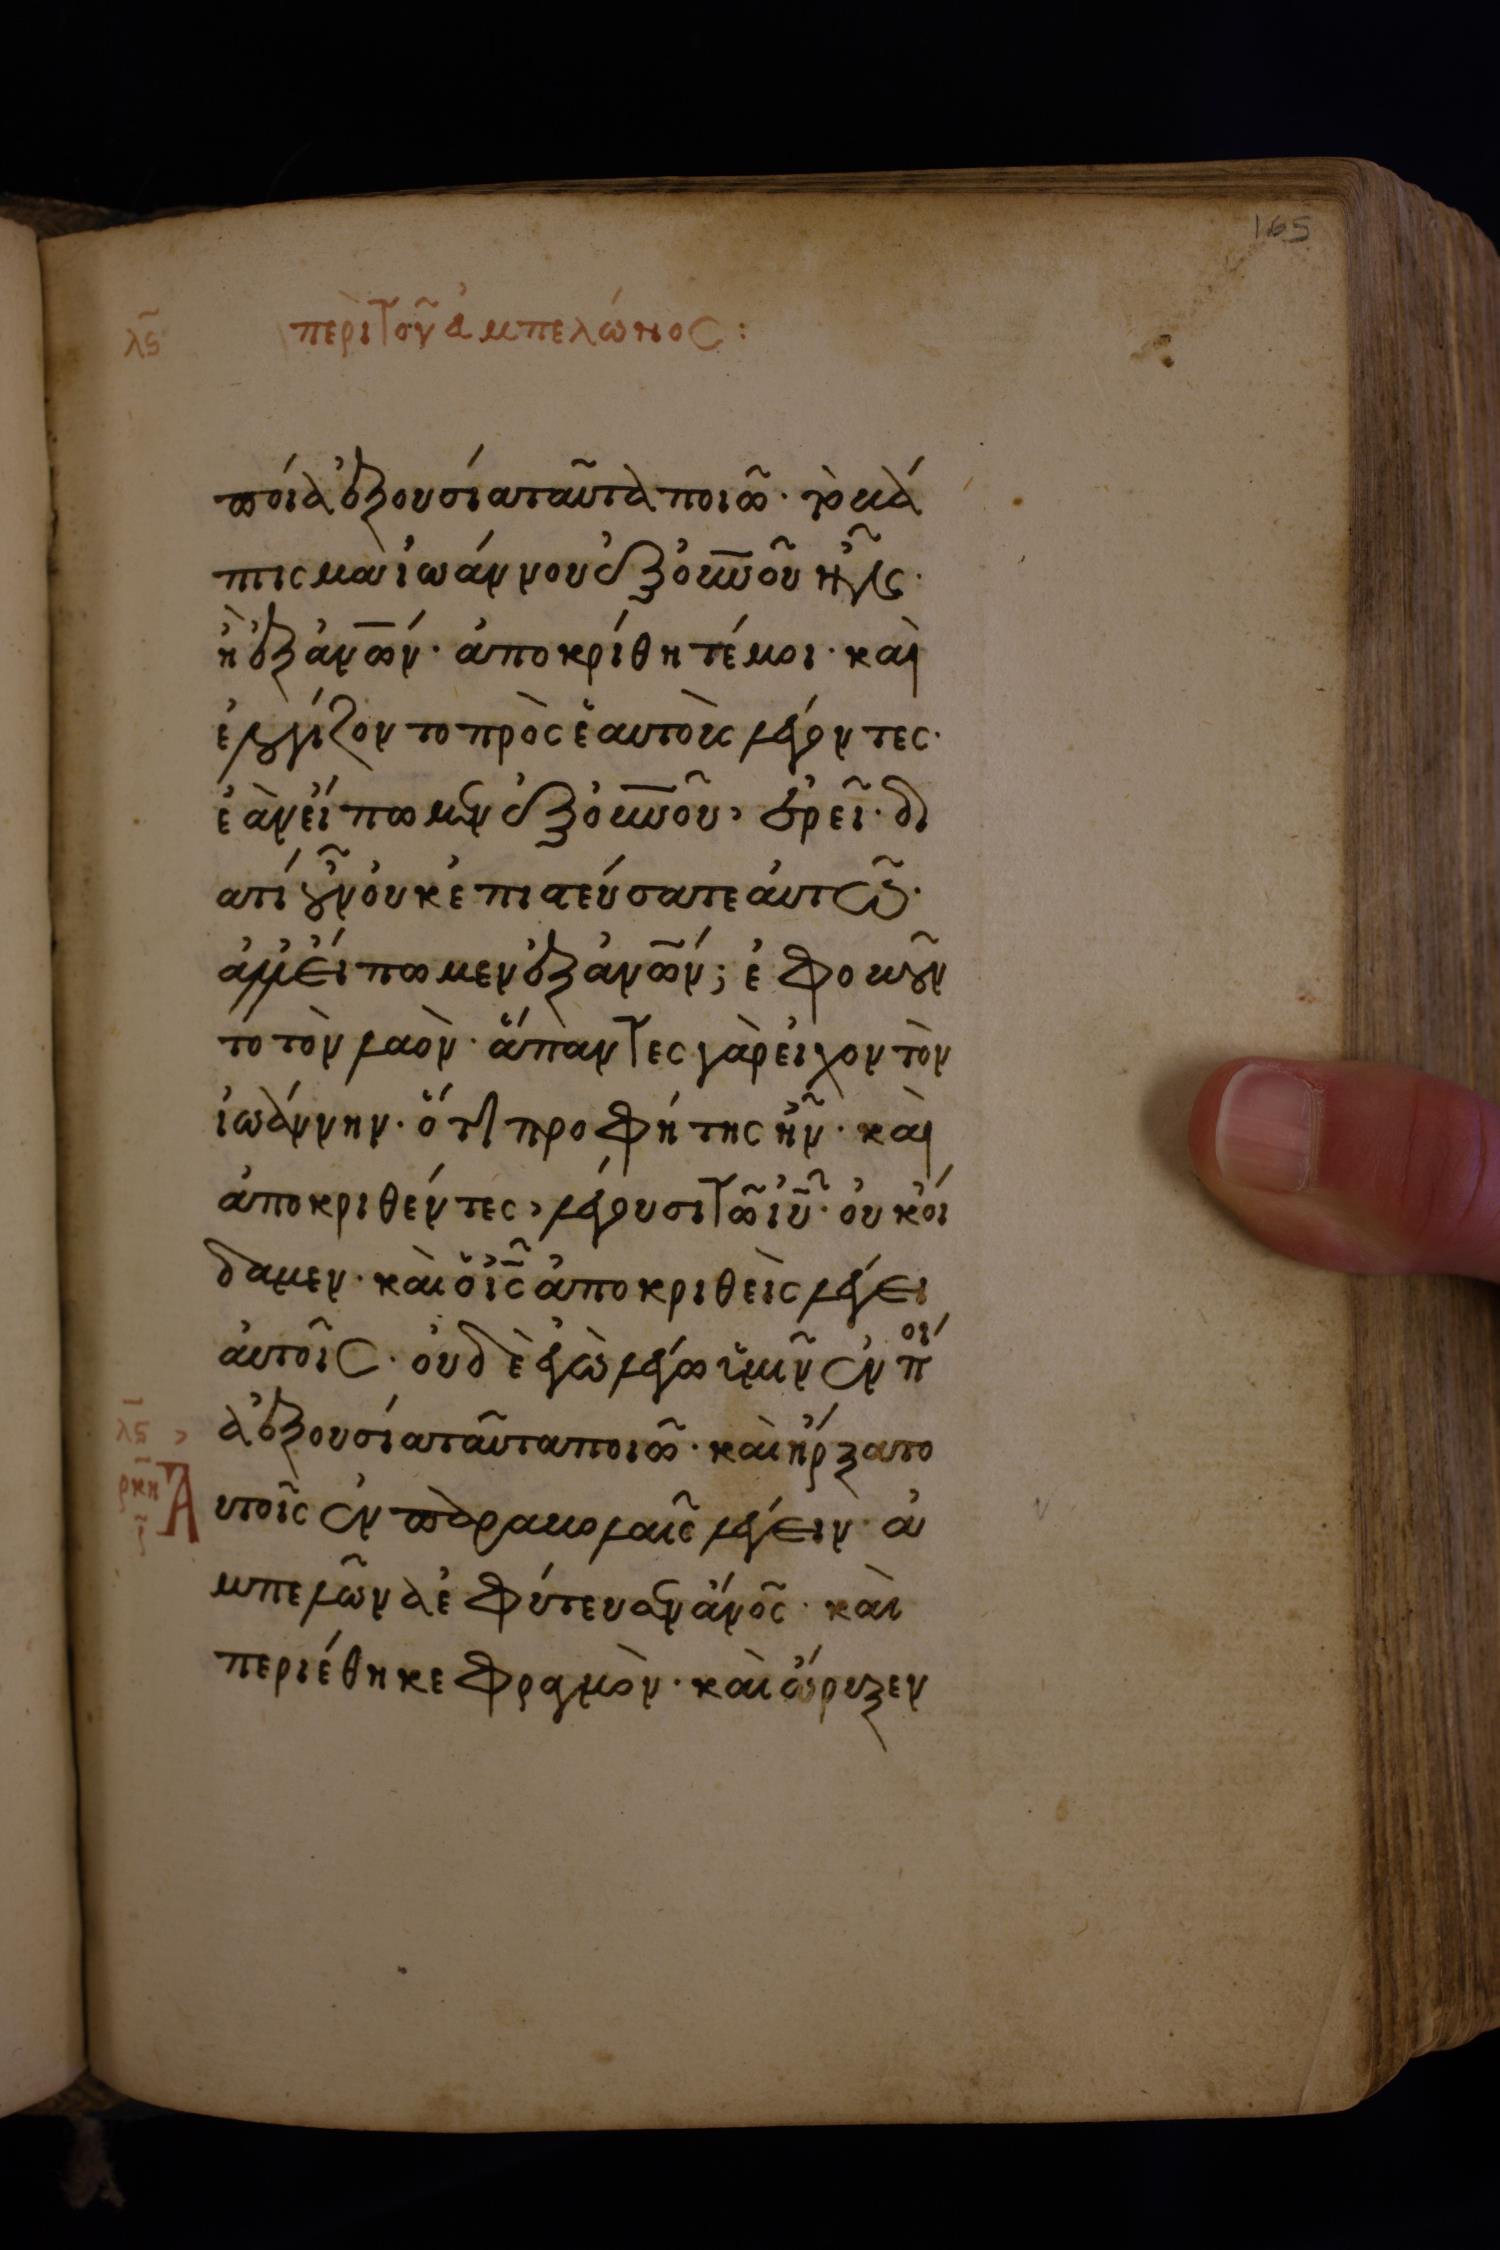 165
λϛ̅ περὶ τοῦ ἀμπελώνος:
ποία ἐξουσία ταῦτα ποιῶ· τὸ βά
πτισμα ἰωάννου ἐξ οὐ̅νο̅ῦ ἦν·
ἢ ἐξ ἀν̅ων· ἀποκρίθητέ μοι· καὶ
ἐλογίζοντο πρὸς ἑαυτοὺς λέγοντες·
ἐὰν εἴπωμεν ἐξ οὐ̅νο̅ῦ, ἐρεῖ· δι
ατί οὖν οὐκ ἐπιστεύσατε αὐτῶ·
ἀλλ εἴπωμεν ἐξ ἀν̅ων; ἐφοβοῦν
το τὸν λαὸν· ἅπαντες γὰρ εἶχον τὸν
ἰωάννην· ὅτι προφήτης ἦν· καὶ
ἀποκριθέντες, λέγουσι τῶ ἰ̅υ̅· οὐκ οἴ
δαμεν· καὶ ὁ ἰ̅ς̅ ἀποκριθεὶς λέγει
αὐτοῖς· οὐδὲ ἐγὼ λέγω ὑμῖν ἐν ποί
λϛ̅ α ἐξουσία ταῦτα ποιῶ· καὶ ἤρξατο
ρκη̅ Αὐτοῖς ἐν παραβολαῖς λέγειν· ἀ
μπελῶνα ἐφύτευσεν ἄν̅ος· καὶ
περιέθηκε φραγμὸν· καὶ ὤρυξεν